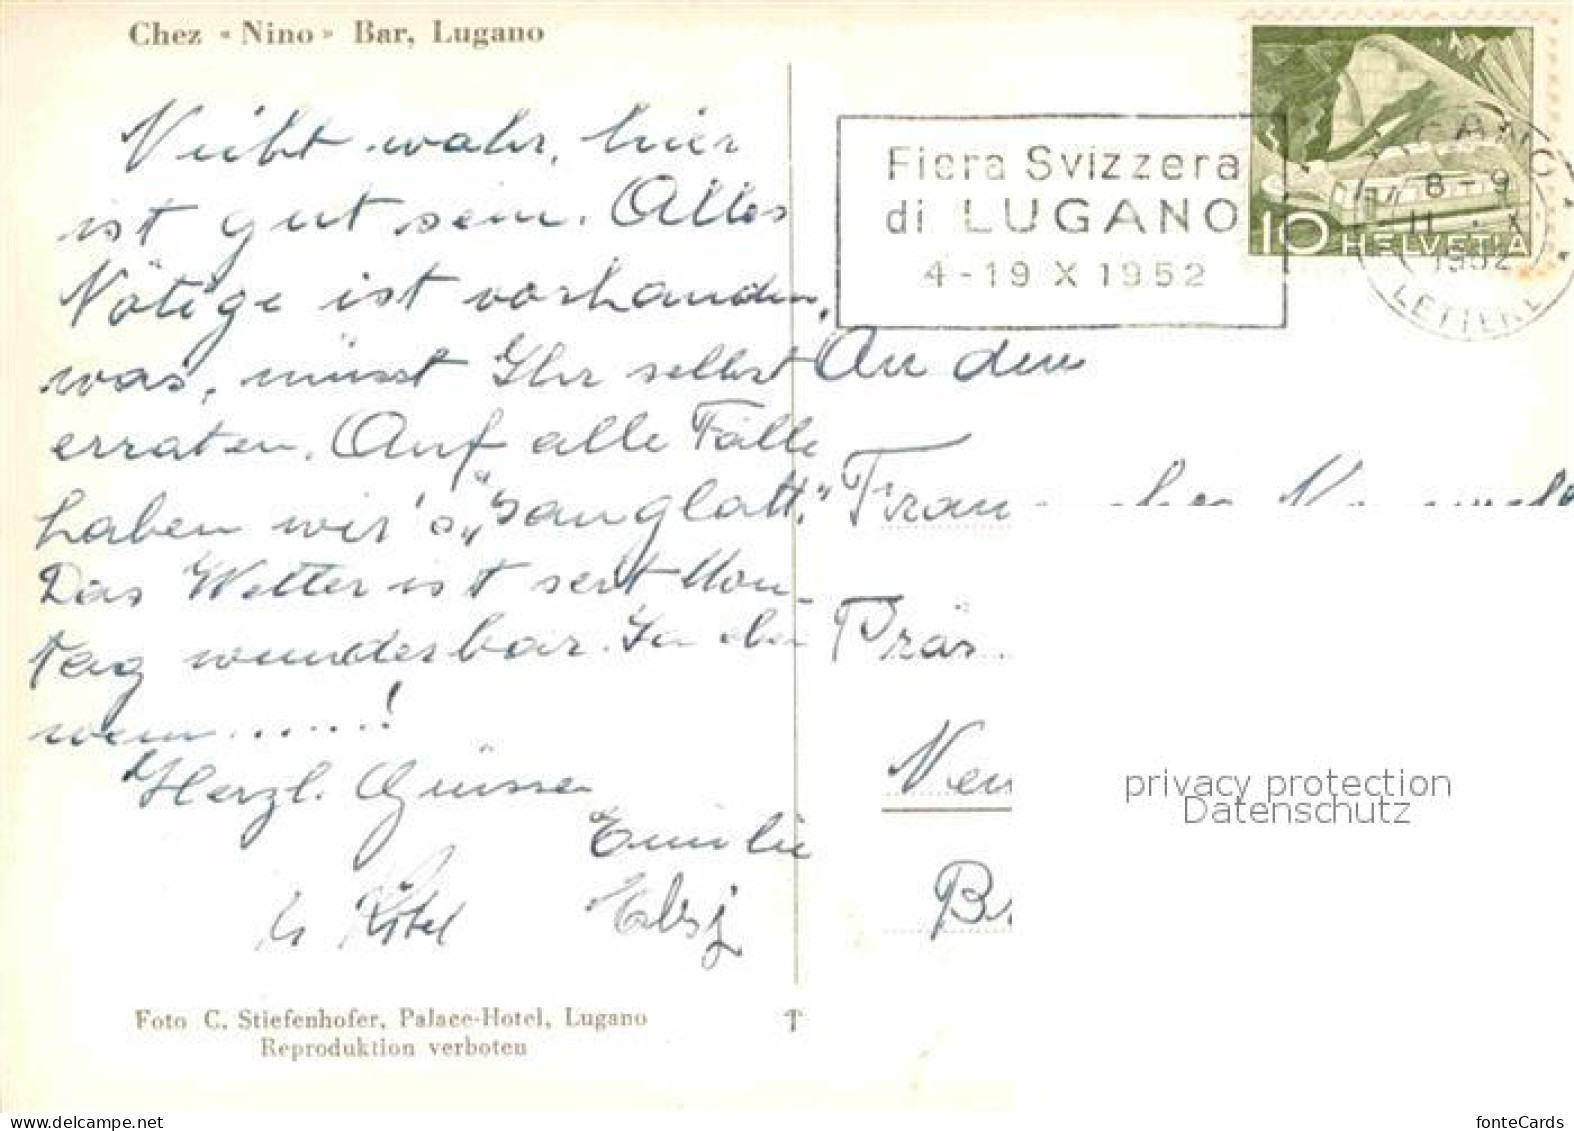 Chez «Nino» Bar, Lugano
Nicht wahr, hier
ist gut sein. Alles
Nötige ist vorhanden,
was, müsst Ihr selbst
erraten. Auf alle Fälle
haben wir's „sauglatt."
Das Wetter ist seit Mon-
tag wunderbar. Ja eben
wenn......!
Herzl. Grüsse
Emilie
Elsj
Foto C. Stiefenhofer, Palace-Hotel, Lugano
Reproduktion verboten
Fiera Svizzera
di LUGANO
4-19 X 1952
10 HELVETIA
LUGANO
8-9
11.X
1952
LETTERE
An den
Präs
privacy protection
Datenschutz
fonteCards